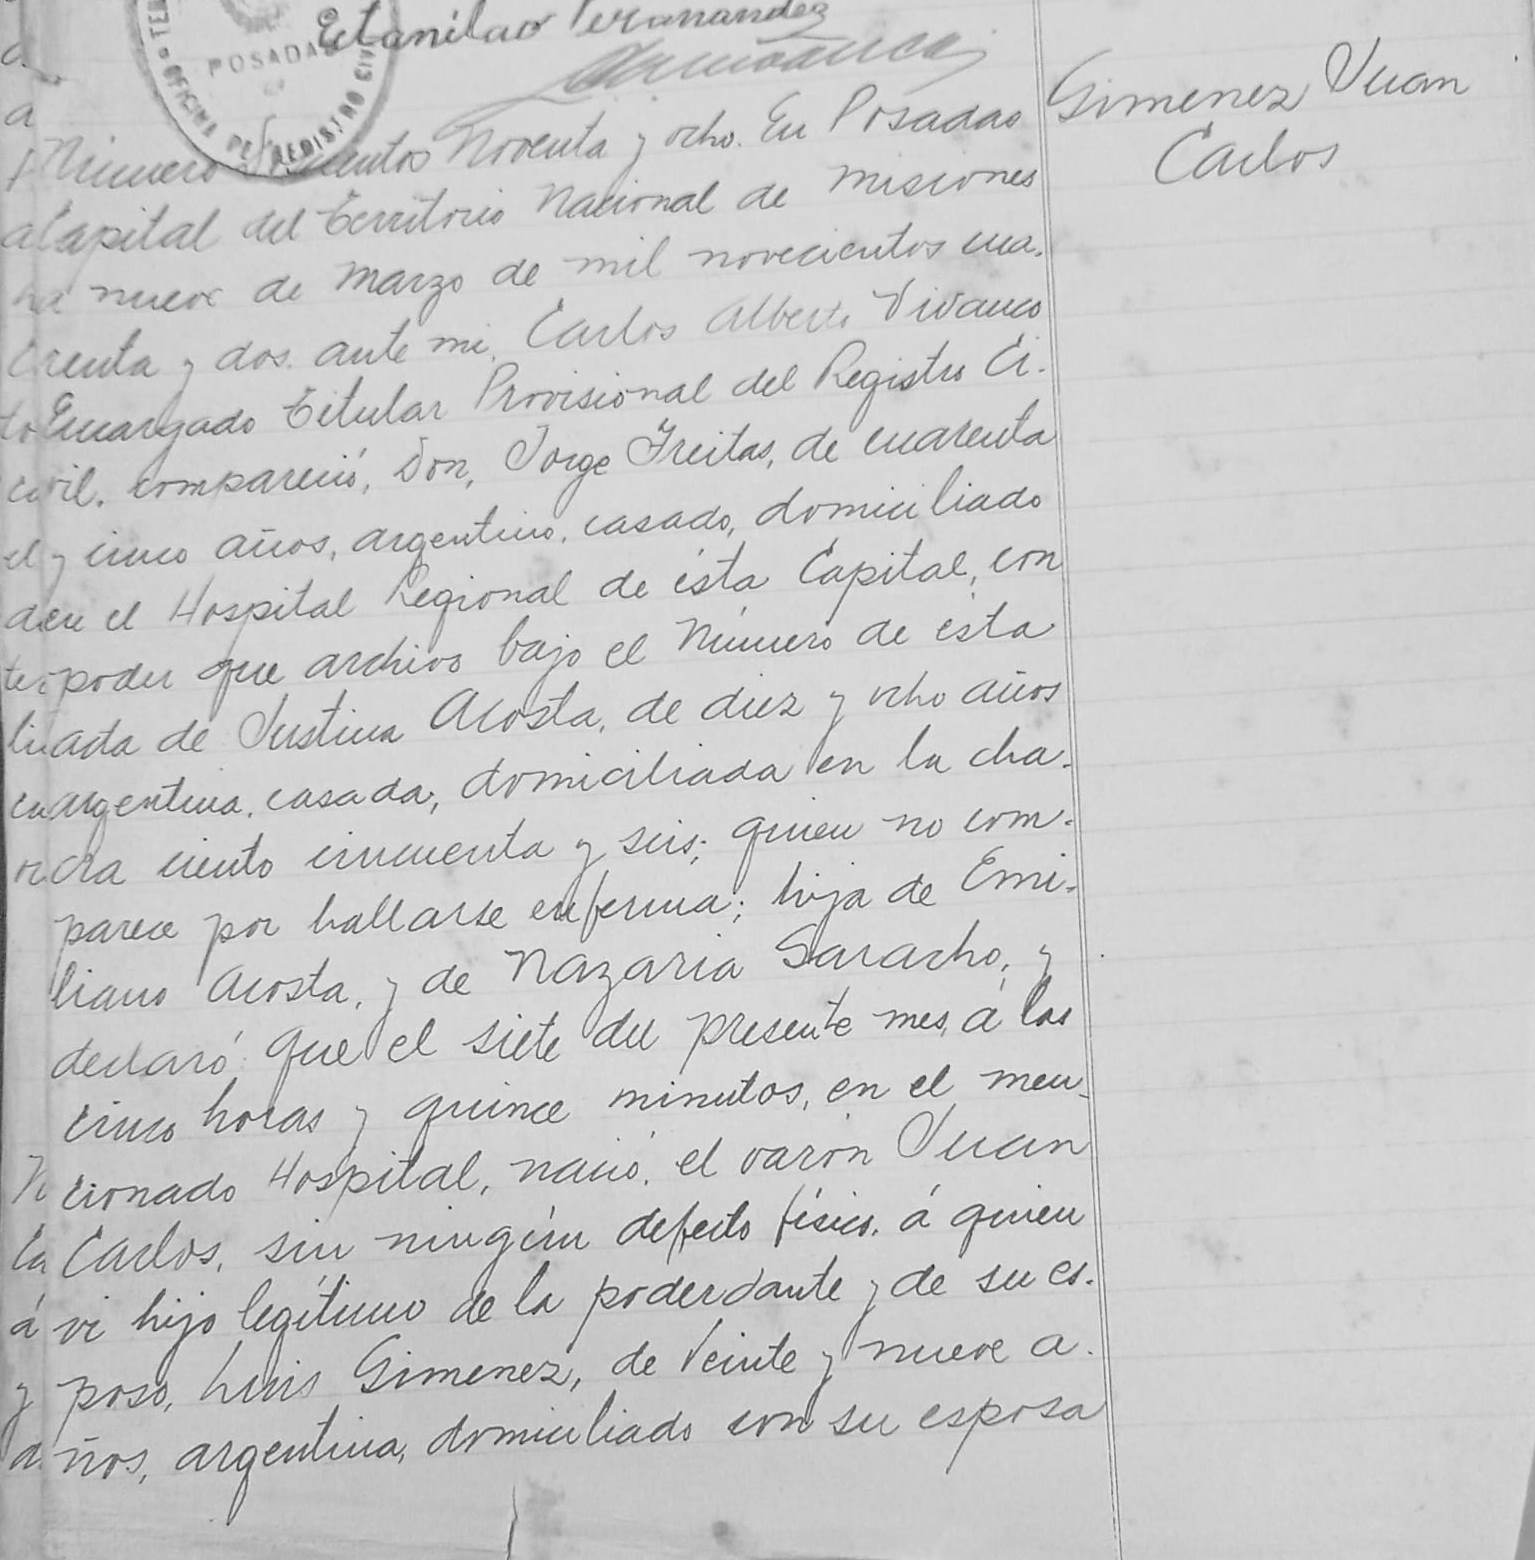 Estanilao Fernandez
POSADAS
OFICINA DEL REGISTRO CIVIL
Gimenez Juan
Carlos
Número noventa y ocho. En Posadas
Capital del territorio Nacional de Misiones
nueve de Marzo de mil novecientos cua-
renta y dos. ante mi, Carlos Alberto Vivanco
Encargado titular Provisional del Registro Ci-
vil. compareció, Don, Jorge Freitas, de cuarenta
y cinco años, argentino, casado, domiciliado
en el Hospital Regional de ésta Capital, con
poder que archivo bajo el Número de ésta
acta de Justina Acosta, de diez y ocho años
argentina, casada, domiciliada en la cha-
cra ciento cincuenta y seis; quien no com-
parece por hallarse enferma; hija de Emi-
liano Acosta, y de Nazaria Saracho, y
declaró: que el siete del presente mes, á las
cinco horas y quince minutos, en el men-
cionado Hospital, nació, el varón Juan
Carlos, sin ningún defecto físico, á quien
vi hijo legítimo de la poderdante y de su es-
poso, Luis Gimenez, de veinte y nueve a-
ños, argentina, domiciliado con su esposa